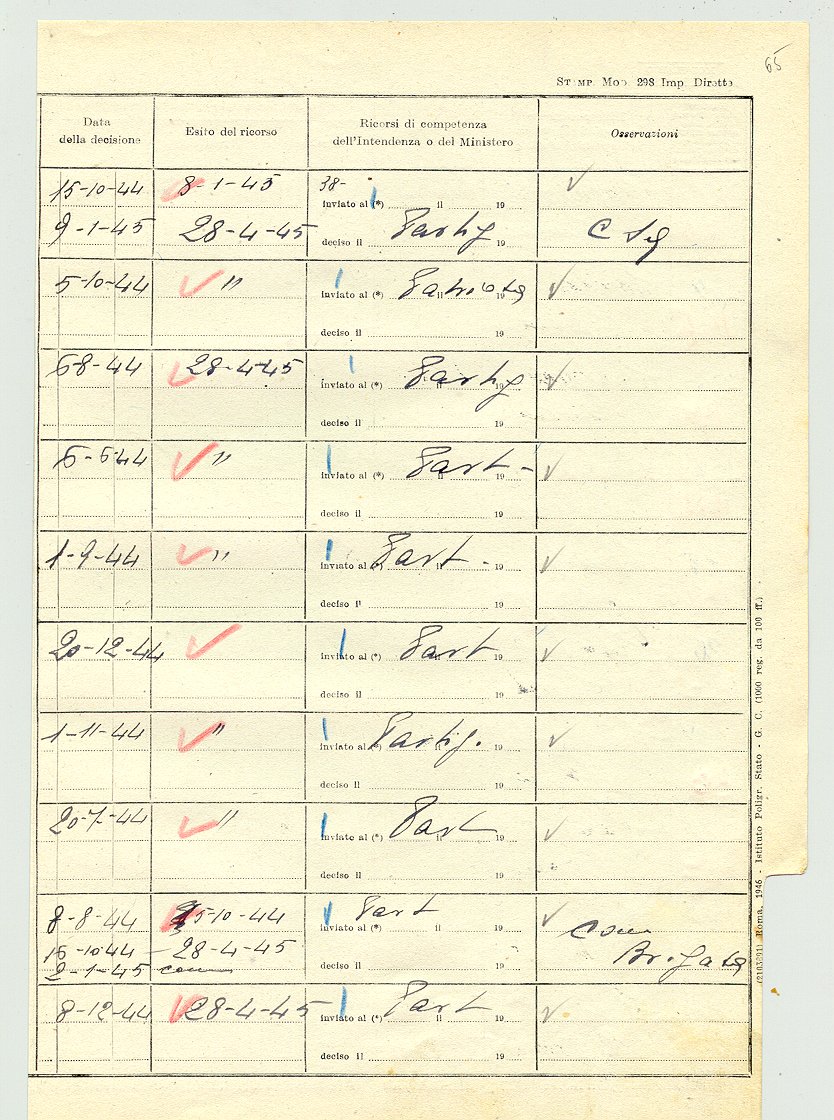 65
STAMP. MOD. 298 Imp Dirette
Data della decisione
Esito del ricorso
Ricorsi di competenza dell'Intendenza o del Ministero
Osservazioni
15-10-44 8-1-45 38-
inviato al (*) il 19
9-1-45 28-4-45 Partig
deciso il 19
5-10-44 "
inviato al (*) Patriota il 19
deciso il 19
68-44 28-4-45
inviato al (*) Partig il 19
deciso il 19
"
inviato al (*) Part- il 19
deciso il 19
1-9-44 "
inviato al (*) Part- il 19
deciso il 19
20-12-44
inviato al (*) Part il 19
deciso il 19
1-11-44 "
inviato al (*) Partig. il 19
deciso il 19
20-7-44 "
inviato al (*) Part il 19
deciso il 19
8-8-44 15-10-44 Part
inviato al (*) il 19
-10-44 - 28-4-45 Com
2-1-45 com Brigata
deciso il 19
8-12-44 28-4-45 Part
inviato al (*) il 19
deciso il 19
Roma, 1946 - Istituto Poligr. Stato - G. C. (1000 reg. da 100 ff.)